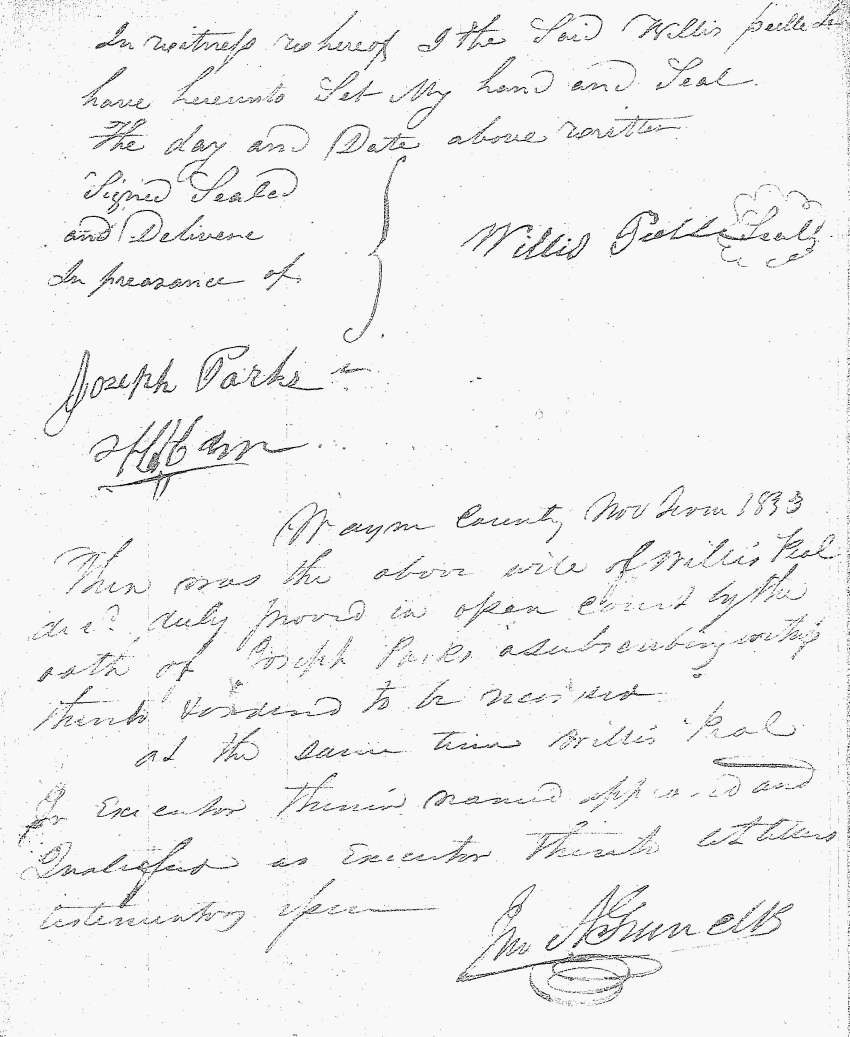 In witness whereof I the Said Willis peelle Sr
have hereunto Set My hand and Seal
The day and Date above written
Signed Sealed
and Delivere
In preasance of
Willis Peelle Seal
Joseph Parks
H Ham
Wayn County Nov Term 1833
Then was the above will of Willis Peal
decd duly proved in open Court by the
oath of Joseph Parks a subscribing
thereto & ordered to be recorded
at the same time Willis Peal
Jr Executor therein named appeared and
Qualified as Executor thereto let letters
testementory Issue